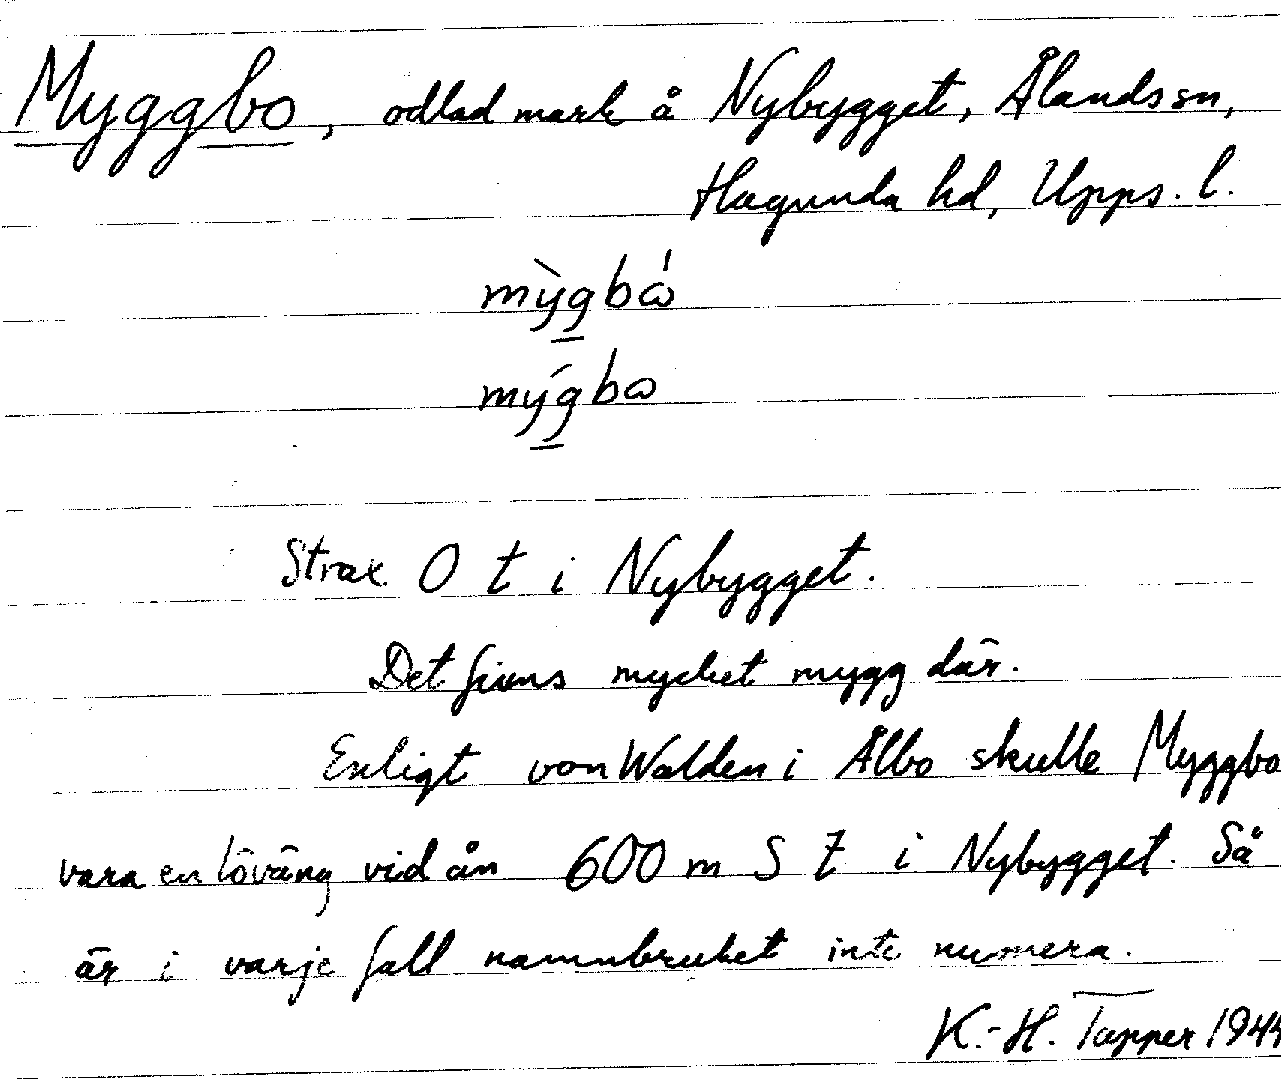 Myggbo, odlad mark å Nybygget, Ålands sn,
Hagunda hd, Upps. l.
mỳgbώ
mýgbω
Strax O t i Nybygget.
Det finns mycket mygg där.
Enligt von Walden i Ålbo skulle Myggbo
vara en löväng vid ån 600 m S Z i Nybygget. Så
är i varje fall namnbruket inte numera.
K.-H. Tapper 1944